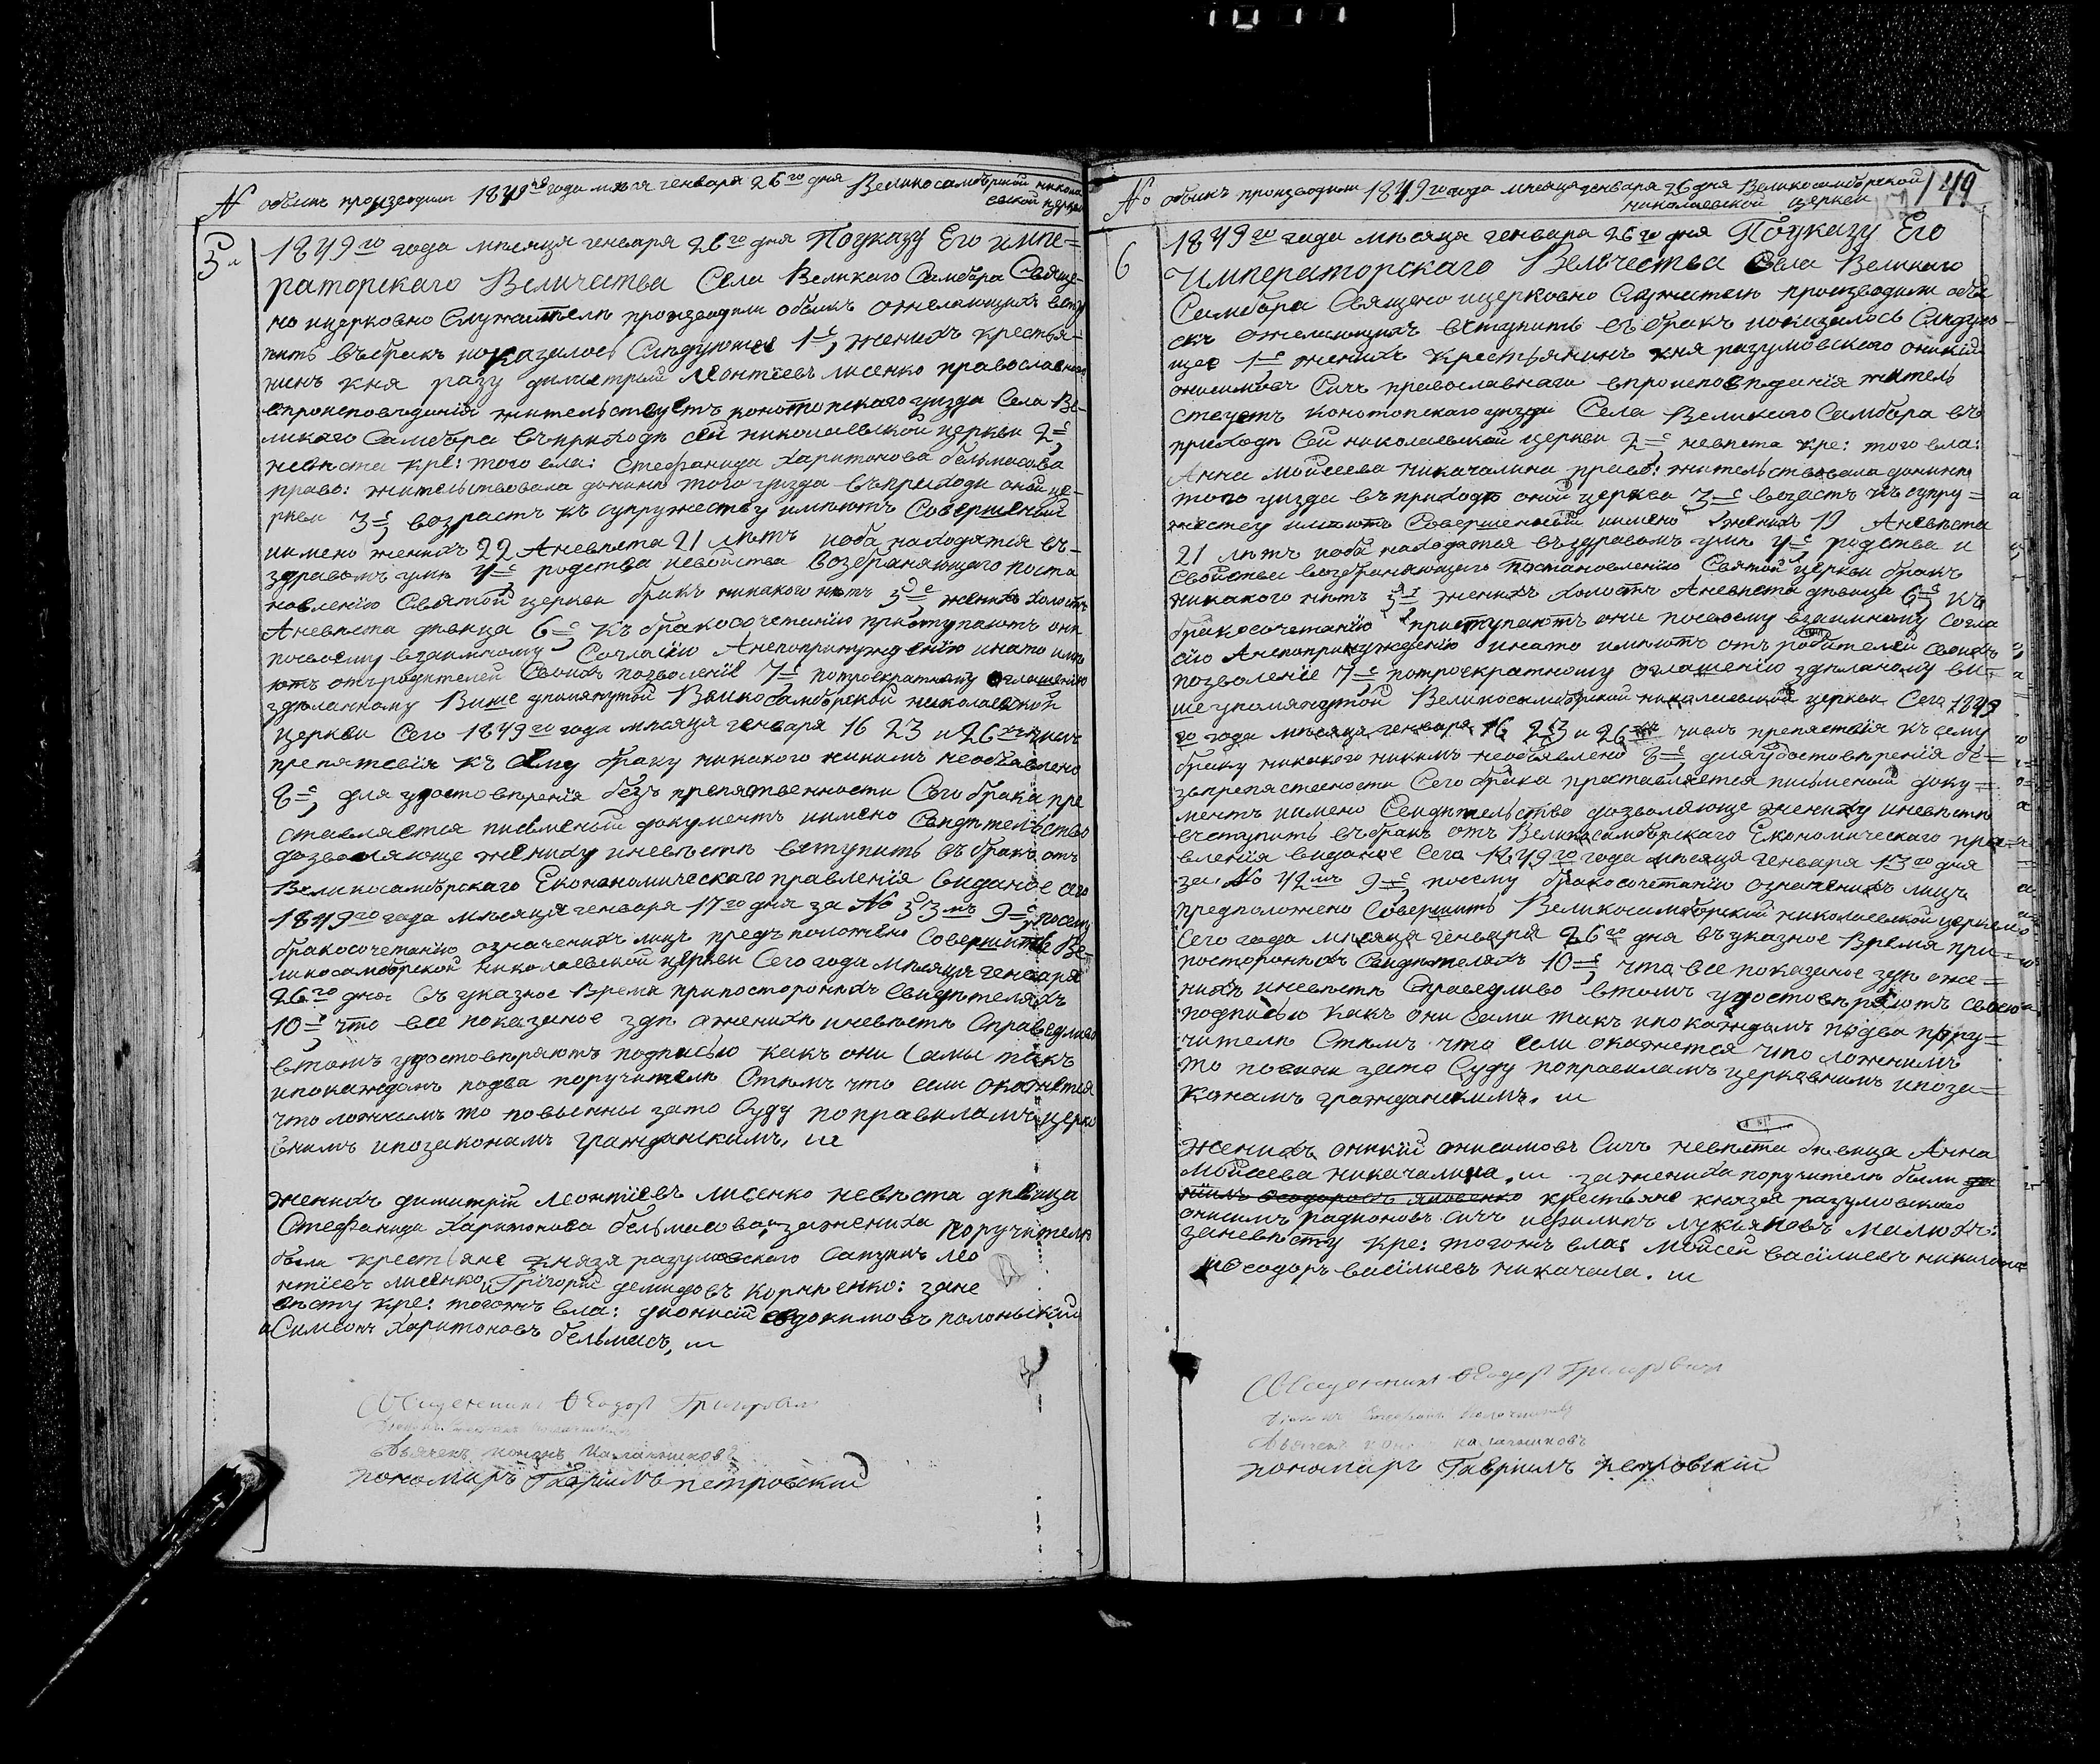 № обыкъ производили 1849го года мѣся генваря 26го дня Великосамборской никола
евской церкви
5
1849го года мѣсяца генваря 26го дня Поуказу Его импе=
раторскаго Величества Села Великаго Самбора Свяще-
но ицерковно Служители производили обыкъ ожелающихъ всту
пить въбракъ показалось Слѣдующее 1е, женихъ крестья=
нинъ кня разу димитрий Леонтіевъ лисенко православнаго
впроисповѣданія жительствуетъ конотопскаго уизда Села Ве-
ликаго Самбора въприходѣ сей николаевской церкви 2е,
невѣста кре: того вла: Стефанида Харитонова бельмасова
право: жительствовала донинѣ того уизда въприходи оной це-
ркви 3е, возрастъ къ супружеству имѣютъ Совершеный
иимено женихъ 22 Аневѣста 21 лѣтъ иоба находятся въ-
здравомъ умѣ 4е, родства исвойства возбраняющаго поста
новленію Святой церкви бракъ никакого нѣтъ 5е женихъ холостъ
Аневѣста дѣвица 6е, Къ бракосочетанію приступаютъ они
посвоему взаимному Согласію Анепопринужденію инато имѣ
ютъ отъродителей Своихъ позволеніе 7е потроекратному оглашенію
здѣланному Више упомянутой Великосамборской николаевской
церкви Сего 1849го года мѣсяца генваря 16 23 и 26хъ числъ
препятсвія къ Сему браку никакого никимъ необявлено
8е, для удостовѣренія безъ препятвенности Сего брака пре
ставляется писменый документъ иимено Свидѣтельство
дозволяюще жениху иневѣстѣ вступить въ бракъ отъ
Великосамборскаго Економическаго правленія виданое сего
1849го года мѣсяца генваря 17го дня за № 33мъ 9е, посему
бракосочетанію означенихъ лицъ предъположено Совершить Ве-
ликосамборской николаевской церкви Сего года мѣсяца генваря
26го дня въ указное Время припосторонихъ Свидѣтеляхъ
10е, что все показаное здѣ ожениxѣ иневѣстѣ Справедливо
втомъ удостовѣряютъ подписью какъ они Сами такъ
ипокаждомъ подва поручители Стѣмъ что если окажется
что ложнымъ то повынны зато Суду поправиламъ церко
внимъ ипозаконамъ гражданскимъ.
женихъ димитрій Леонтіевъ лисенко невѣста дѣвица
Стефанида Харитонова бельмасова, зажениха поручители
били крестьяне князя разумовского Лео
нтіевъ лисенко, Григорій демидовъ Корніенко: зане
вѣсту кре: тогожъ вла: дионисій евдокимовъ
Симеонъ Харитоновъ бельмасъ,
Священникъ Ѳеодоръ Григорович
Дьячекъ Калачниковъ
пономаръ Гавріилъ петровскій
№ обыкъ производили 1849го года мѣсяца генваря 26 дня Великосамборской
николаевской церкви
149
6
1849го года мѣсяца генваря 26го дня Поуказу Его
Императорскаго Величества Села Великаго
Самбора Священо ицерковно Служители производили обы
скъ ожелающихъ вступить въ бракъ показалось Слѣдую
щее 1е женихъ Крестьянинъ кня разумовского оникій
онисимовъ Сичъ православнаго впроисповѣданія житель
ствуетъ конотопскаго уизда Села Великаго Самбора въ
приходѣ Сей николаевской церкви 2е, невѣста кре: того вла:
Анна Мойсеева никачалина право: жительствовала донинѣ
того уизда въприходѣ оной церкви 3е возрастъ къ супру=
жеству имѣютъ Совершенный иимено женихъ 19 Аневѣста
21 лѣтъ иоба находятся въздравомъ умѣ 4е, родства и
Свойства возбраняющаго постановленію Святой церкви бракъ
никакого нѣтъ 5е женихъ холостъ Аневѣста дѣвица 6е, къ
бракосочетанію приступаютъ они посвоему взаимному Согла
сію Анепопринужденію инато имѣютъ отъ родителей своихъ
позволеніе 7е потроекратному оглашенію здѣланому ви-
шеупомянутой Великосамборской николаевской церкви Сего 1849
го года мѣсяца генваря 16 23 и 26хъ числъ препятствія къ сему
браку никакого никимъ необявлено 8е, дляудостовѣренія бе=
зъпрепятсвности Сего брака преставляется письменный доку=
ментъ иимено Свидѣтельство дозволяюще жениху иневѣстѣ
вступить въбракъ отъ Великосамборскаго Економическаго пра=
вленія виданое Сего 1849го года мѣсяца генваря 13го дня
за № 42мъ 9е, посему бракосочетанію означенихъ лицъ
предположено Совершить Великосамборской николаевской церкви
Сего года мѣсяца генваря 26го дня въ указное Время при=
посторонихъ Свидѣтеляхъ 10е, что все показаное здѣ оже=
нихѣ иневѣстѣ Справедливо втомъ удостовѣряютъ своею
подписью Какъ они Сами такъ ипокаждомъ подва пору=
чители Стѣмъ что если окажется что ложнимъ
то повини зато Суду поправиламъ церковнимъ ипоза=
конамъ гражданскимъ.
женихъ оникій онисимовъ Сичъ невѣста дѣвица Анна
Мойсеева никачалина. зажениха поручители били
крестьяне князя разумовского
онисимъ радионовъ Сичъ ифилипъ лукьяновъ малюхъ:
заневѣсту кре: тогожъ вла: Мойсей василиевъ
иѲеодоръ василиевъ никачала.
Священникъ Ѳеодоръ Григорович
Дьячекъ калачниковъ
пономарь Гавриилъ петровскій